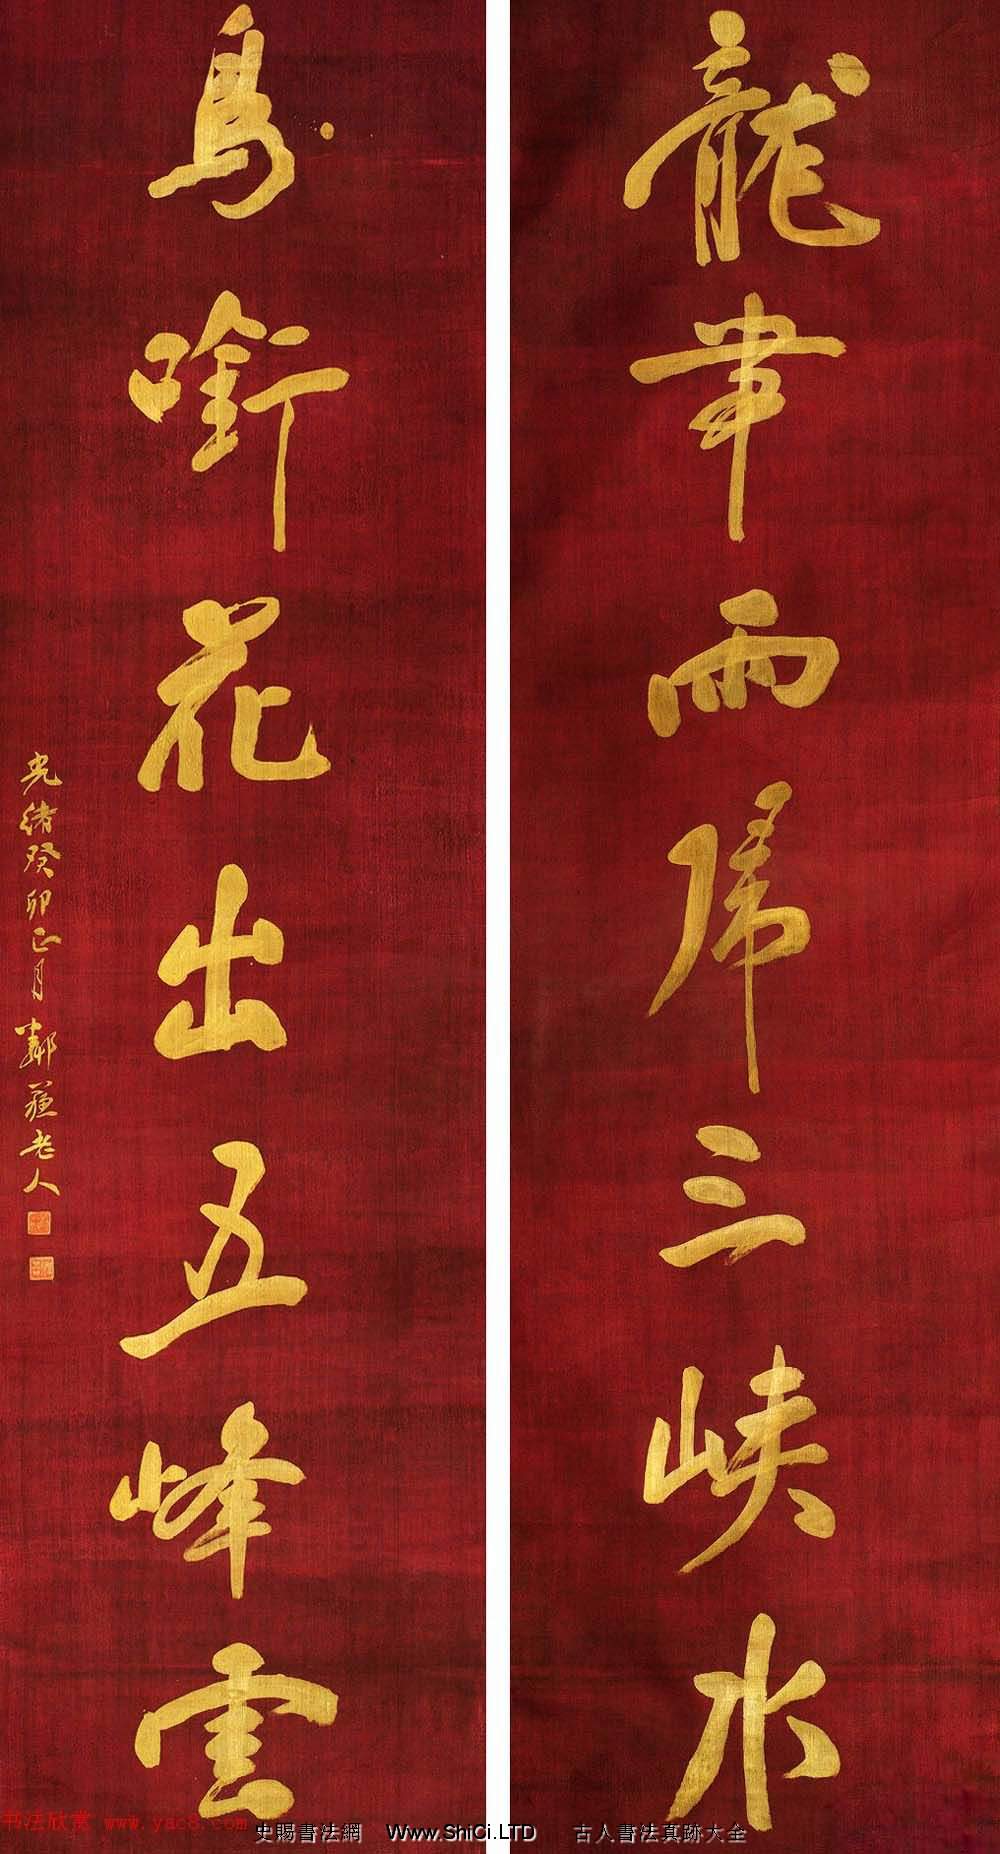 龍牽雨歸三峽水
鳥銜花出五峰雲
光緒癸卯正月 鄰蘇老人
书法欣赏 www.yac8.com
史賜書法網 Www.ShiCi.LTD 古人書法真跡大全